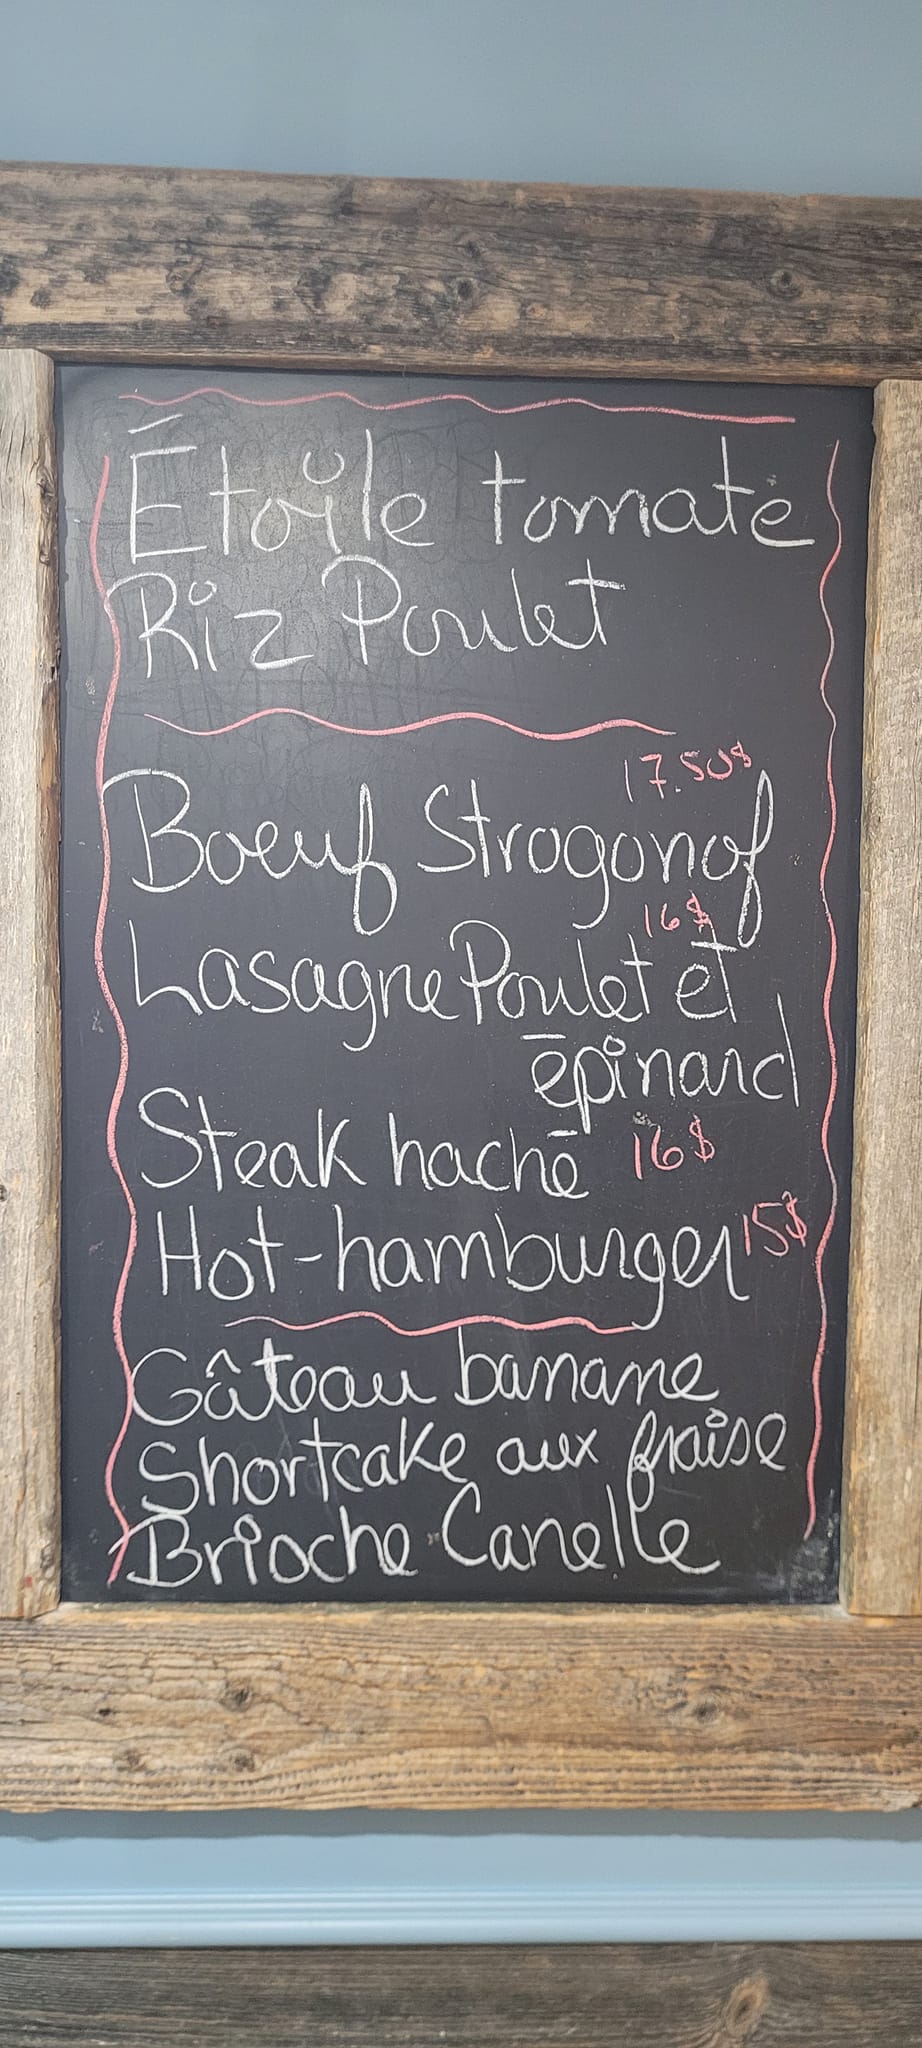 Étoile tomate
Riz Poulet
17.50$
Boeuf Strogonof
16$
Lasagne Poulet et
épinard
Steak haché 16$
Hot-hamburger 15$
Gâteau banane
Shortcake aux fraise
Brioche Canelle